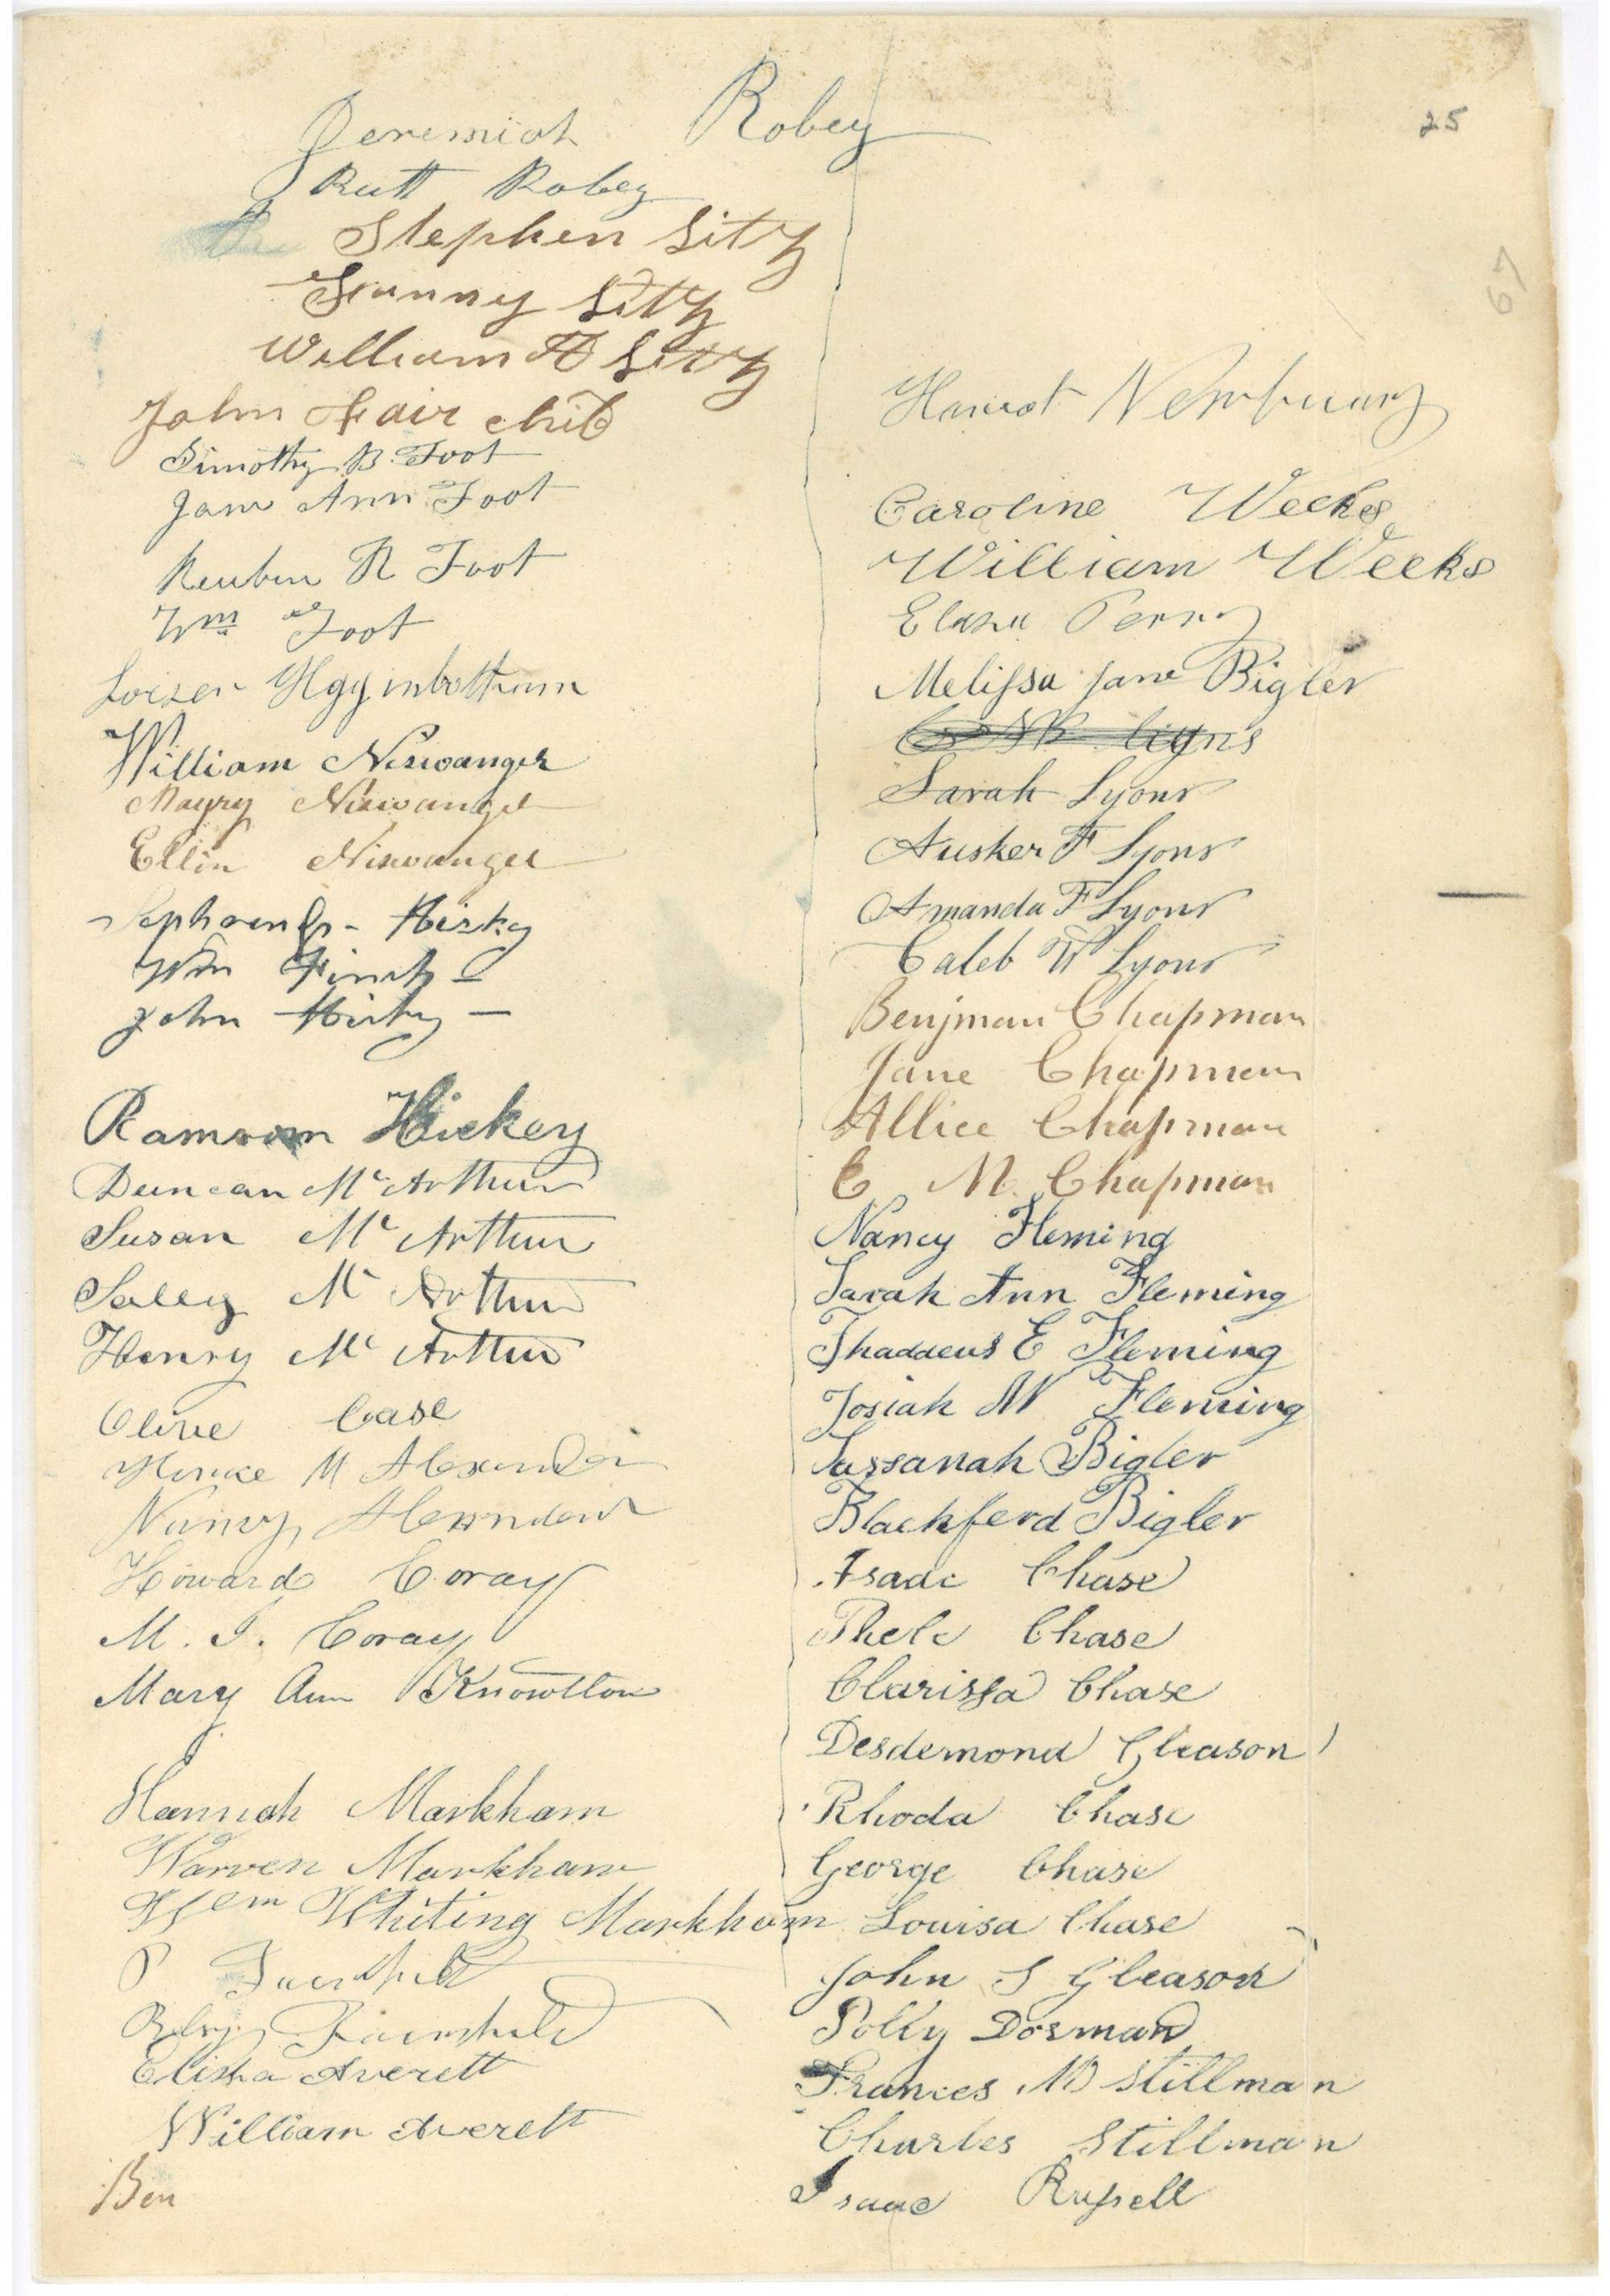 25
67
Jeremiah Robey
Ruth Robey
Stephen Litz
Fanny Litz
William A Litz
John Fair child
Timothy B Foot
Jane Ann Foot
Reuben R Foot
Wm Foot
Higginbotham
William Niswanger
Mayry Niswanger
Ellin Niswanger
Hicky
Wm Finch
John Hicky
Ransom Hickey
Duncan Mc Arthur
Susan Mc Arthur
Salley Mc Arthur
Henry Mc Arthur
Olive Case
M Alexander
Nancy Alexander
Howard Coray
M. J. Coray
Mary Ann Knowlton
Hannah Markham
Warren Markham
Wm Whiting Markham
Fairchild
Elisha Averett
William Averett
Ben
Harriot Newbuary
Caroline Weeks
William Weeks
Perry
Melissa Jane Bigler
Sarah Lyons
Ausker F Lyons
Amanda F Lyons
Caleb W Lyons
Benjman Chapman
Jane Chapman
Allice Chapman
C M. Chapman
Nancy Fleming
Sarah Ann Fleming
Thaddeus E Fleming
Josiah W Fleming
Sussanah Bigler
Blackferd Bigler
Isaac Chase
Phebe Chase
Clarissa Chase
Desdemond Gleason
Rhoda Chase
George Chase
Louisa Chase
John S Gleason
Polly Dorman
Frances M Stillman
Charles Stillman
Isaac Russell